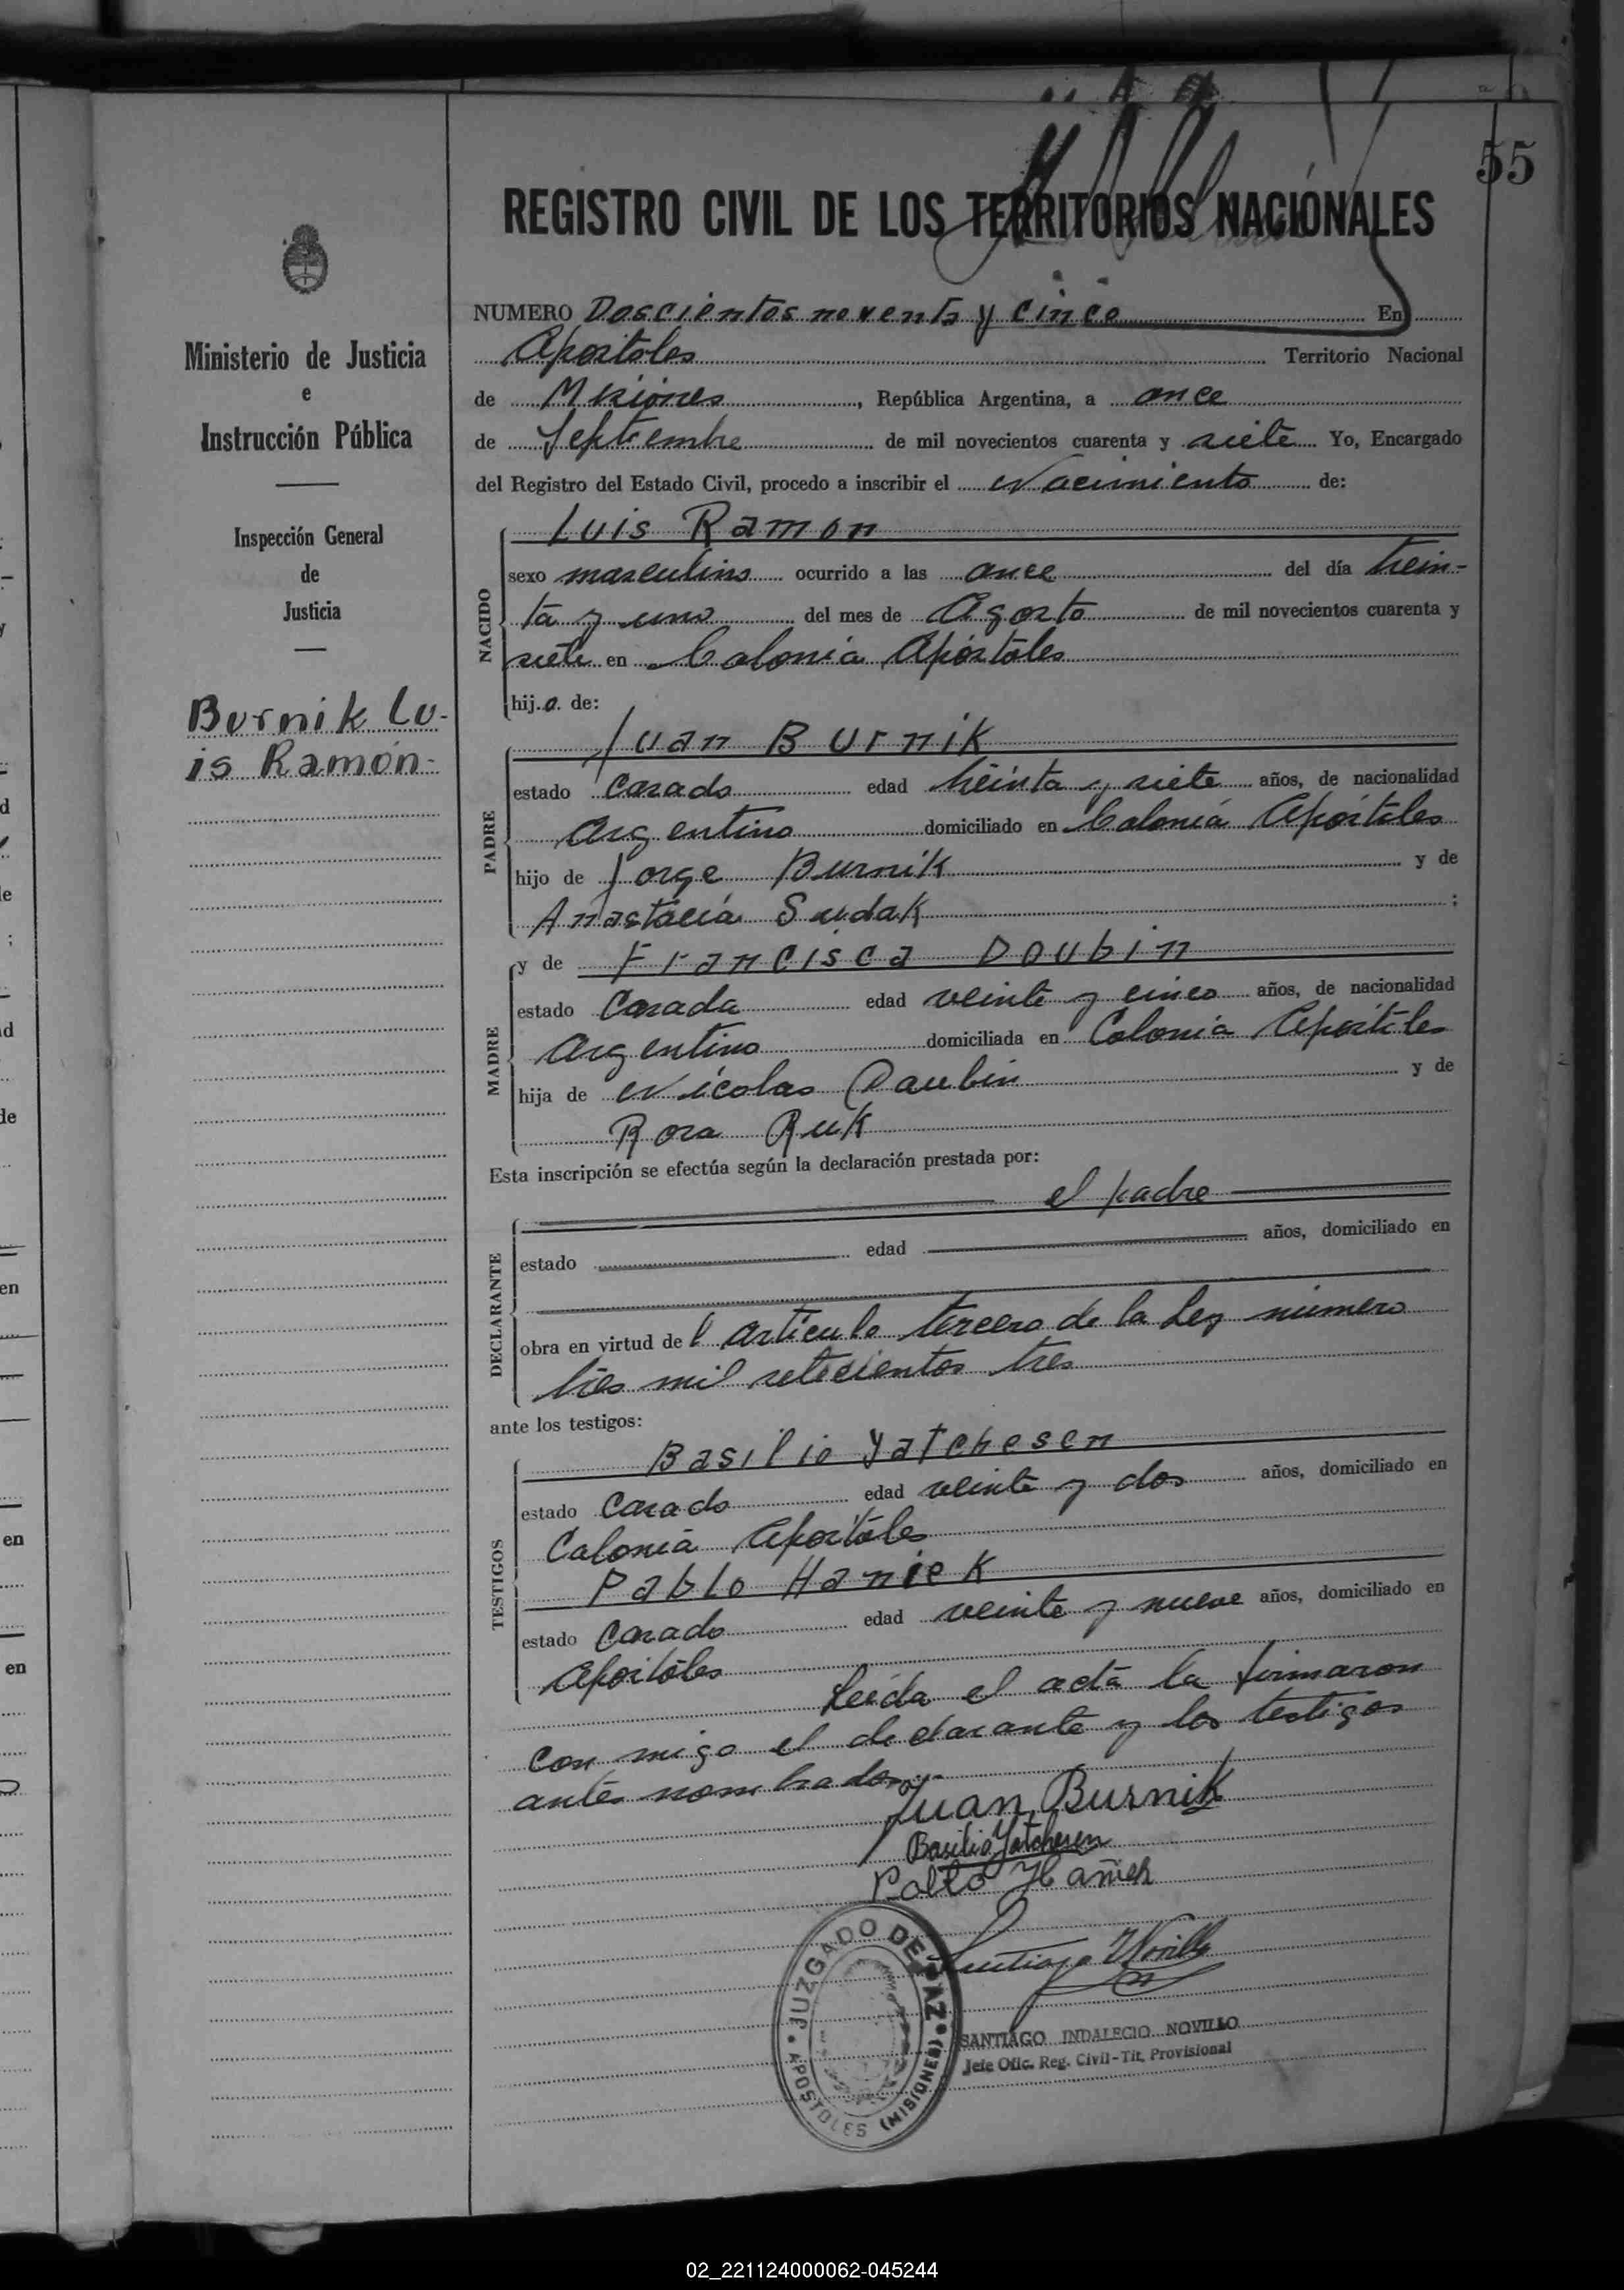 55
REGISTRO CIVIL DE LOS TERRITORIOS NACIONALES
Ministerio de Justicia
e
Instrucción Pública
Inspección General
de
Justicia
Burnik Lu-
is Ramón-
NUMERO Doscientos noventa y cinco En
Apóstoles Territorio Nacional
de Misiones, República Argentina, a once
de Septiembre de mil novecientos cuarenta y siete Yo, Encargado
del Registro del Estado Civil, procedo a inscribir el Nacimiento de:
NACIDO
Luis Ramon
sexo masculino ocurrido a las once del día trein-
ta y uno del mes de Agosto de mil novecientos cuarenta y
siete en Colonia Apóstoles
hijo de:
PADRE
Juan Burnik
estado Casado edad treinta y siete años, de nacionalidad
Argentino domiciliado en Colonia Apóstoles
hijo de Jorge Burnik y de
Anastacia Sudak;
MADRE
y de Francisca Doubin
estado Casada edad veinte y cinco años, de nacionalidad
Argentina domiciliada en Colonia Apóstoles
hija de Nicolas Daubin y de
Rosa Ruk
Esta inscripción se efectúa según la declaración prestada por:
DECLARANTE
el padre
estado edad años, domiciliado en
obra en virtud del articulo tercero de la Ley número
tres mil setecientos tres
ante los testigos:
TESTIGOS
Basilio Yatchesen
estado Casado edad veinte y dos años, domiciliado en
Colonia Apóstoles
Pablo Haniek
estado Casado edad veinte y nueve años, domiciliado en
Apóstoles
Leída el acta la firmaron
con migo el declarante y los testigos
antes nombrados.-
Juan Burnik
Basilio Yatchesen
Pablo Hañiek
Santiago I Novillo
JUZGADO DE PAZ
APOSTOLES (MISIONES)
SANTIAGO INDALECIO NOVILLO
Jefe Ofic. Reg. Civil-Tit. Provisional
02_221124000062-045244